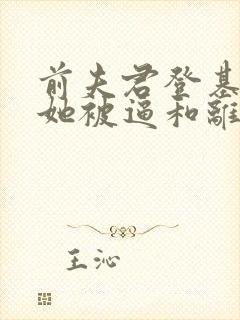 前夫君登基
她被逼和離
王沁